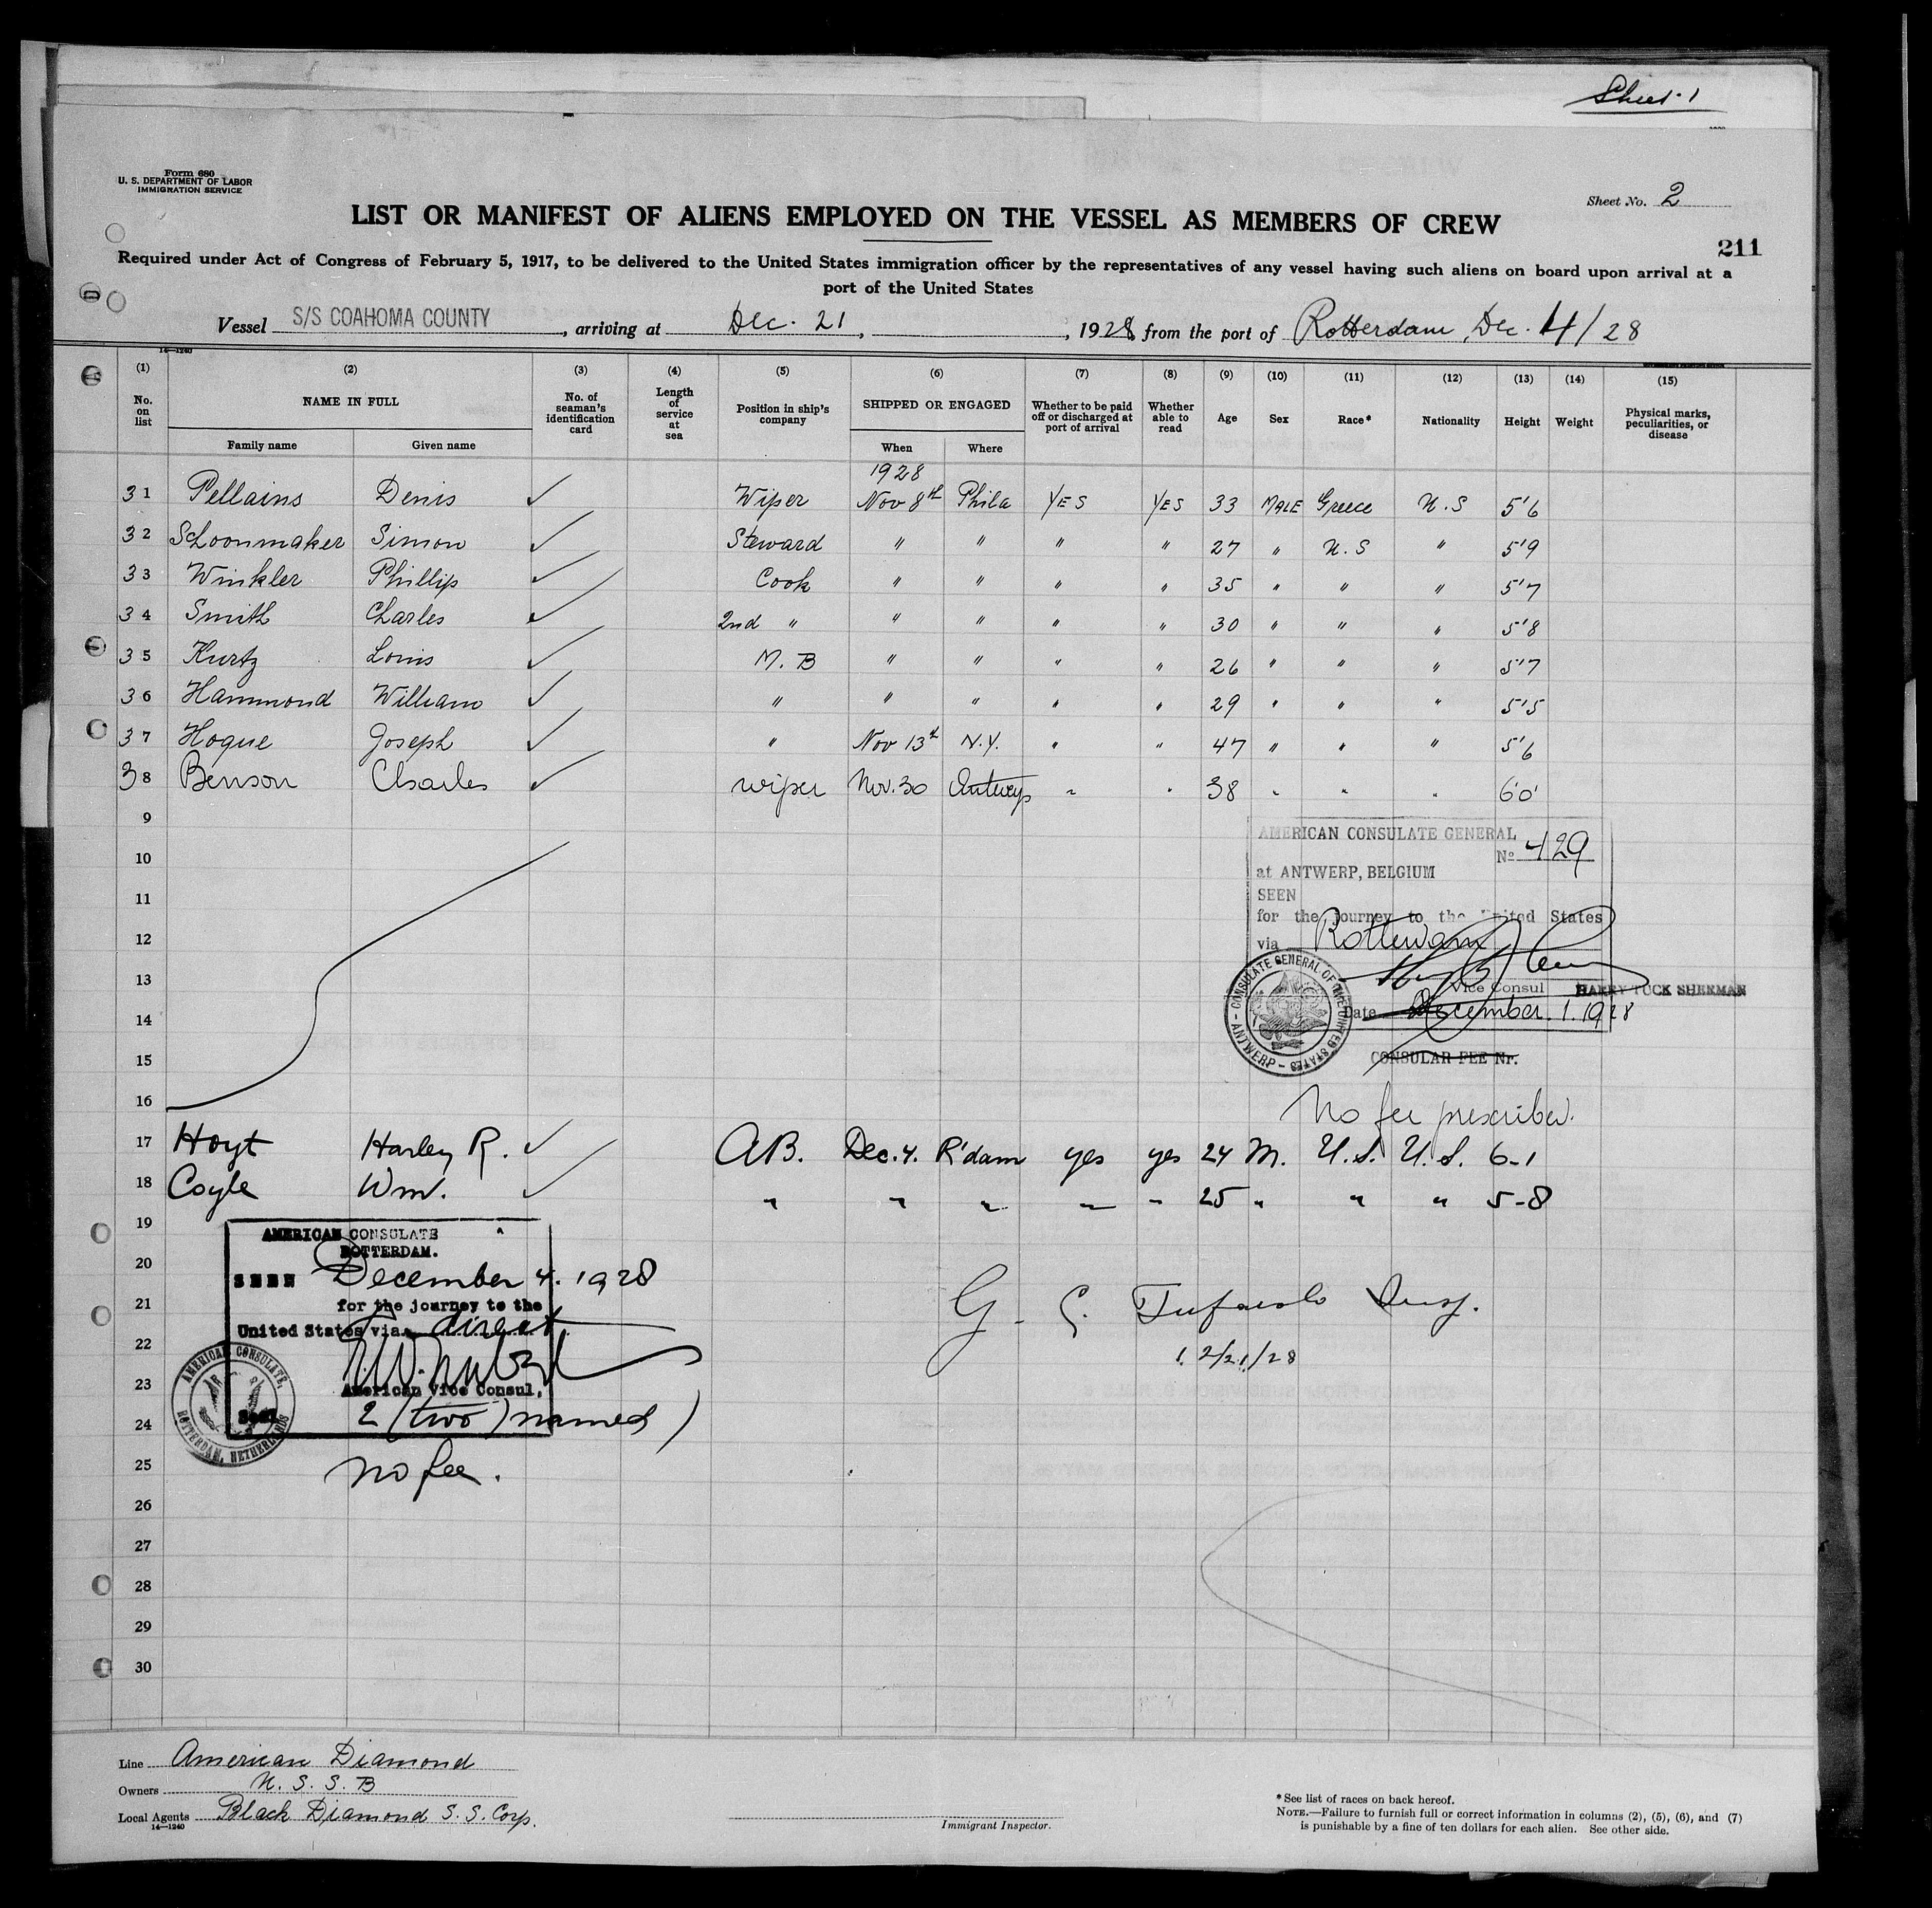 Sheet 1
Form 680
U. S. DEPARTMENT OF LABOR
IMMIGRATION SERVICE
Sheet No. 2
LIST OR MANIFEST OF ALIENS EMPLOYED ON THE VESSEL AS MEMBERS OF CREW
211
Required under Act of Congress of February 5, 1917, to be delivered to the United States immigration officer by the representatives of any vessel having such aliens on board upon arrival at a
port of the United States
Vessel S/S COAHOMA COUNTY, arriving at Dec. 21, 1928, from the port of Rotterdam, Dec. 4/28
14—1240
(1) (2) (3) (4) (5) (6) (7) (8) (9) (10) (11) (12) (13) (14) (15)
No. on list NAME IN FULL No. of seaman's identification card Length of service at sea Position in ship's company SHIPPED OR ENGAGED Whether to be paid off or discharged at port of arrival Whether able to read Age Sex Race* Nationality Height Weight Physical marks, peculiarities, or disease
Family name Given name When Where
1928
31 Pellains Denis ✓ Wiper Nov 8th Phila YES YES 33 MALE Greece U.S 5'6
32 Schoonmaker Simon ✓ Steward " " " " 27 " U.S " 5'9
33 Winkler Phillip ✓ Cook " " " " 35 " " " 5'7
34 Smith Charles ✓ 2nd " " " " " 30 " " " 5'8
35 Kurtz Louis ✓ M.B " " " " 26 " " " 5'7
36 Hammond William ✓ " " " " " 29 " " " 5'5
37 Hogue Joseph ✓ " Nov 13th N.Y. " " 47 " " " 5'6
38 Benson Charles ✓ wiper Nov. 30 Antwerp " " 38 " " " 6'0'
9
10
11
12
13
14
15
16
AMERICAN CONSULATE GENERAL
No 429
at ANTWERP, BELGIUM
SEEN
for the journey to the United States
via Rotterdam
Vice Consul HARRY TUCK SHERMAN
Date December 1. 1928
CONSULATE GENERAL OF THE UNITED STATES - ANTWERP -
CONSULAR FEE Nr.
No fee prescribed.
17 Hoyt Harley R. ✓ AB. Dec. 4. R'dam yes yes 24 M. U.S. U.S. 6-1
18 Coyle Wm. ✓ " " " " " 25 " " " 5-8
19
20
21
22
23
24
25
26
27
28
29
30
AMERICAN CONSULATE
ROTTERDAM.
SEEN December 4. 1928
for the journey to the
United States via direct
American Vice Consul,
Seal 2 (two) named)
AMERICAN CONSULATE, ROTTERDAM, NETHERLANDS
no fee.
G. Insp.
12/21/28
Line American Diamond
Owners U.S.S.B
Local Agents Black Diamond S.S. Corp.
14—1240
Immigrant Inspector.
*See list of races on back hereof.
NOTE.—Failure to furnish full or correct information in columns (2), (5), (6), and (7)
is punishable by a fine of ten dollars for each alien. See other side.